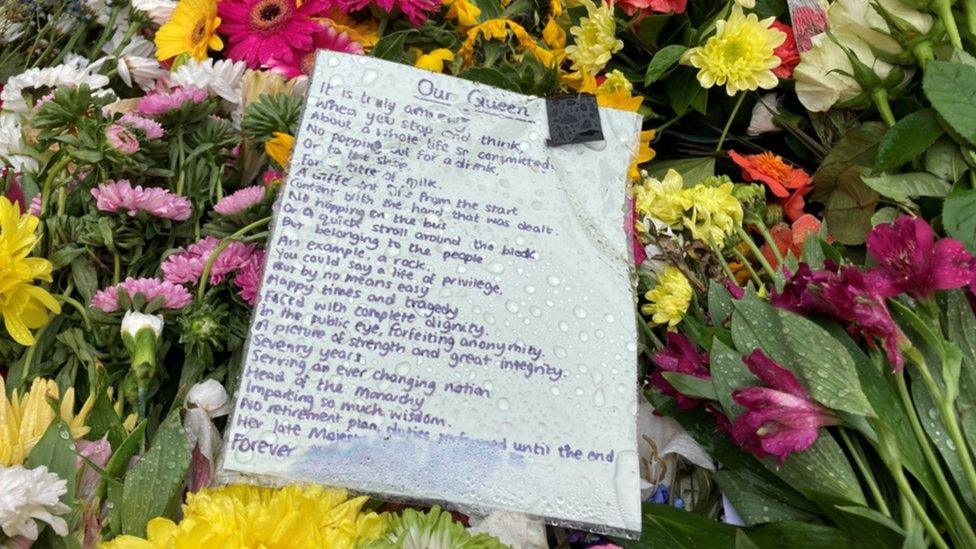 Our Queen
It is truly amazing
When you stop and think
About a whole life so committed.
No popping out for a drink,
Or to the shop
For a litre of milk.
A different life from the start
Content with the hand that was dealt.
No hopping on the bus
Or a quick stroll around the block
But belonging to the people
An example, a rock.
You could say a life of privilege,
But by no means easy
Happy times and tragedy
Faced with complete dignity.
In the public eye, forfeiting anonymity.
A picture of strength and great integrity.
Seventy years
Serving an ever changing nation
Head of the monarchy
Imparting so much wisdom.
No retirement plan, duties performed until the end
Her late Majesty
Forever